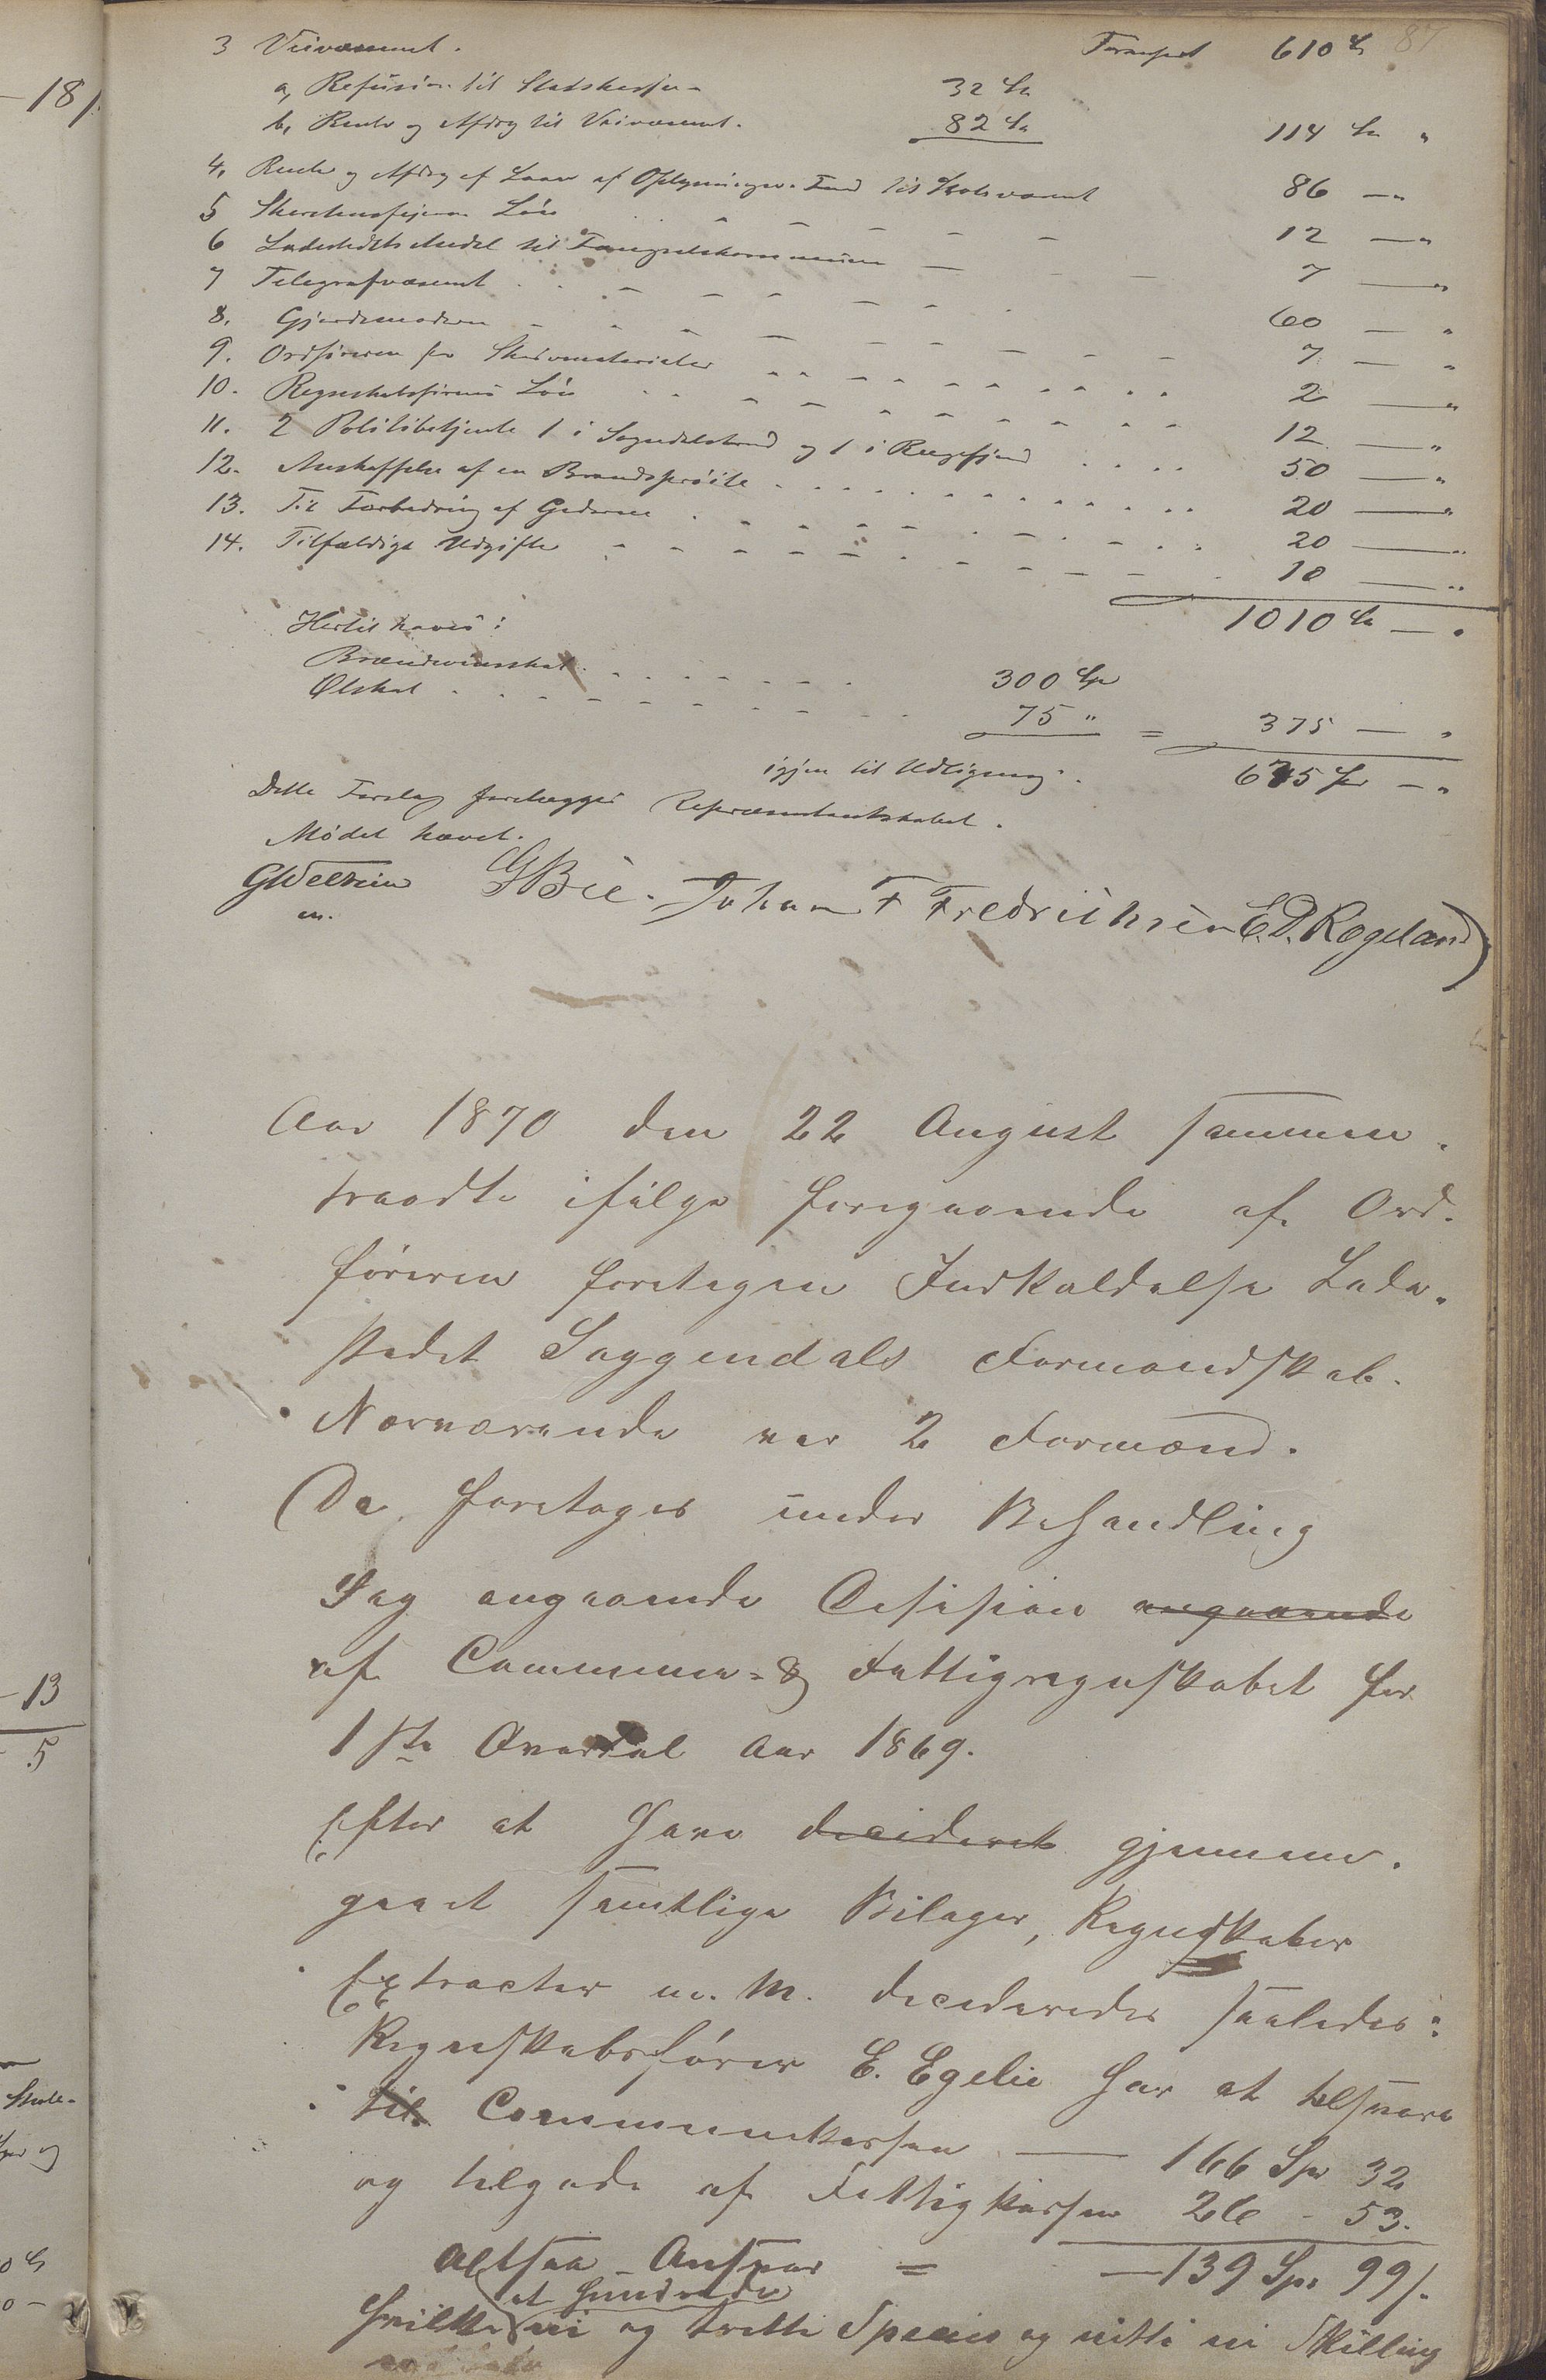 87
3 Veivæsenet. Transport 610 Sp
a, Refusion til Statskassen 32 Sp
b, Rente og Afdrag til Veivæsenet. 82 Sp 114 Sp "
4, Rente og Afdrag af Laan af Oplysnings-Fond til Skolevæsenet 86 — "
5 Skorstensfeierens Løn 12 — "
6 Ladestedets Andel til Fængselskommunen 7 — "
7 Telegrafvæsenet 60 — "
8. Gjordemoderen 7 — "
9. Ordføreren for Skrivematerialer 2 — "
10. Regnskabsførerens Løn 12 — "
11. 2 Politibetjente 1 i Sogndalstrand og 1 i Rægefjord 50 — "
12. Anskaffelse af en Brandsprøite 20 — "
13. Til Forbedring af Gaderne 20 — "
14. Tilfældige Udgifter 10 — "
1010 Sp — "
Hertil haves:
Brændevinsskat 300 Sp
Ølskat 75 " = 375 — "
igjen til Udligning. 635 Sp — "
Dette Forslag forelægges Repræsentantskabet.
Mødet hævet.
GWellein GBie. Johan F Fredrichsen E.D. Rogeland
m.
Aar 1870 den 22 August sammen-
traadte ifølge foregaaende af Ord-
føreren foretagen Indkaldelse Lade-
stedet Soggendals Formandskab.
Nærværende var 2 Formænd.
Da foretoges under Behandling
Sag angaaende Desision angaaende
af Commune- & Fattigregnskabet for
1ste Qvartal Aar 1869.
Efter at have decideret gjennem-
gaaet samtlige Bilager, Regnskaber
Extracter m. M. decideredes saaledes:
Regnskabsfører E. Egelie har at tilsvare
til Communekassen — 166 Spd 32
og tilgode af Fattigkassen 26 - 53.
altsaa Ansvar = — 139 Spd 99 s.
et hundrede
hvilke ni og tretti Species og nitti ni Skilling
- 18 s.
- 13
- 5
Skole-
og